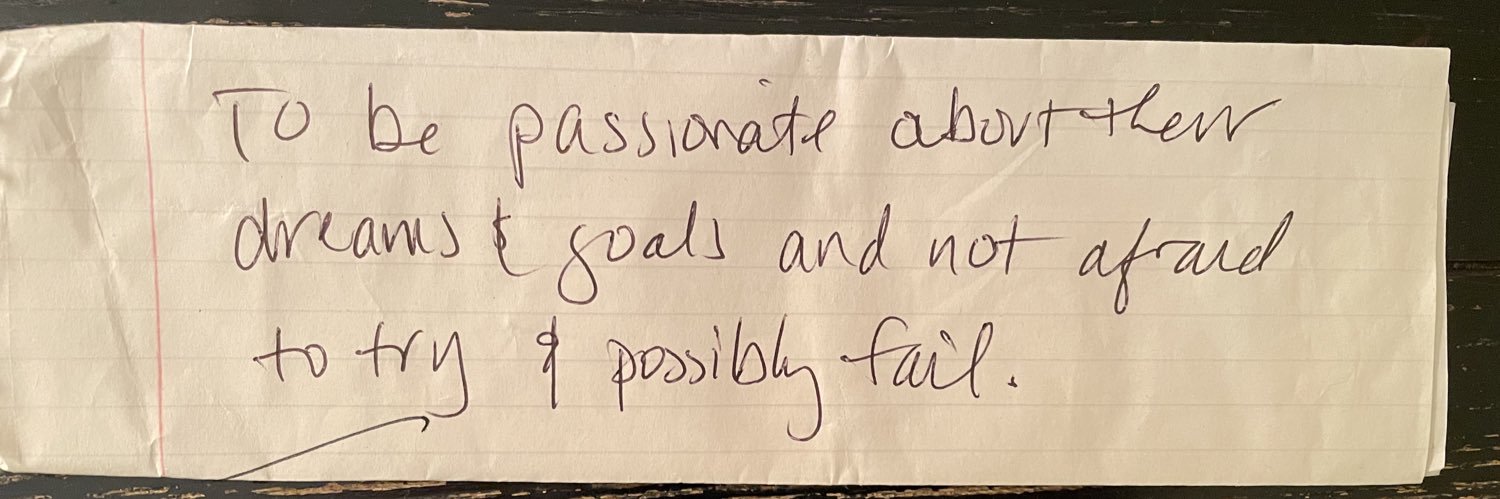 To be passionate about their
dreams & goals and not afraid
to try & possibly fail.